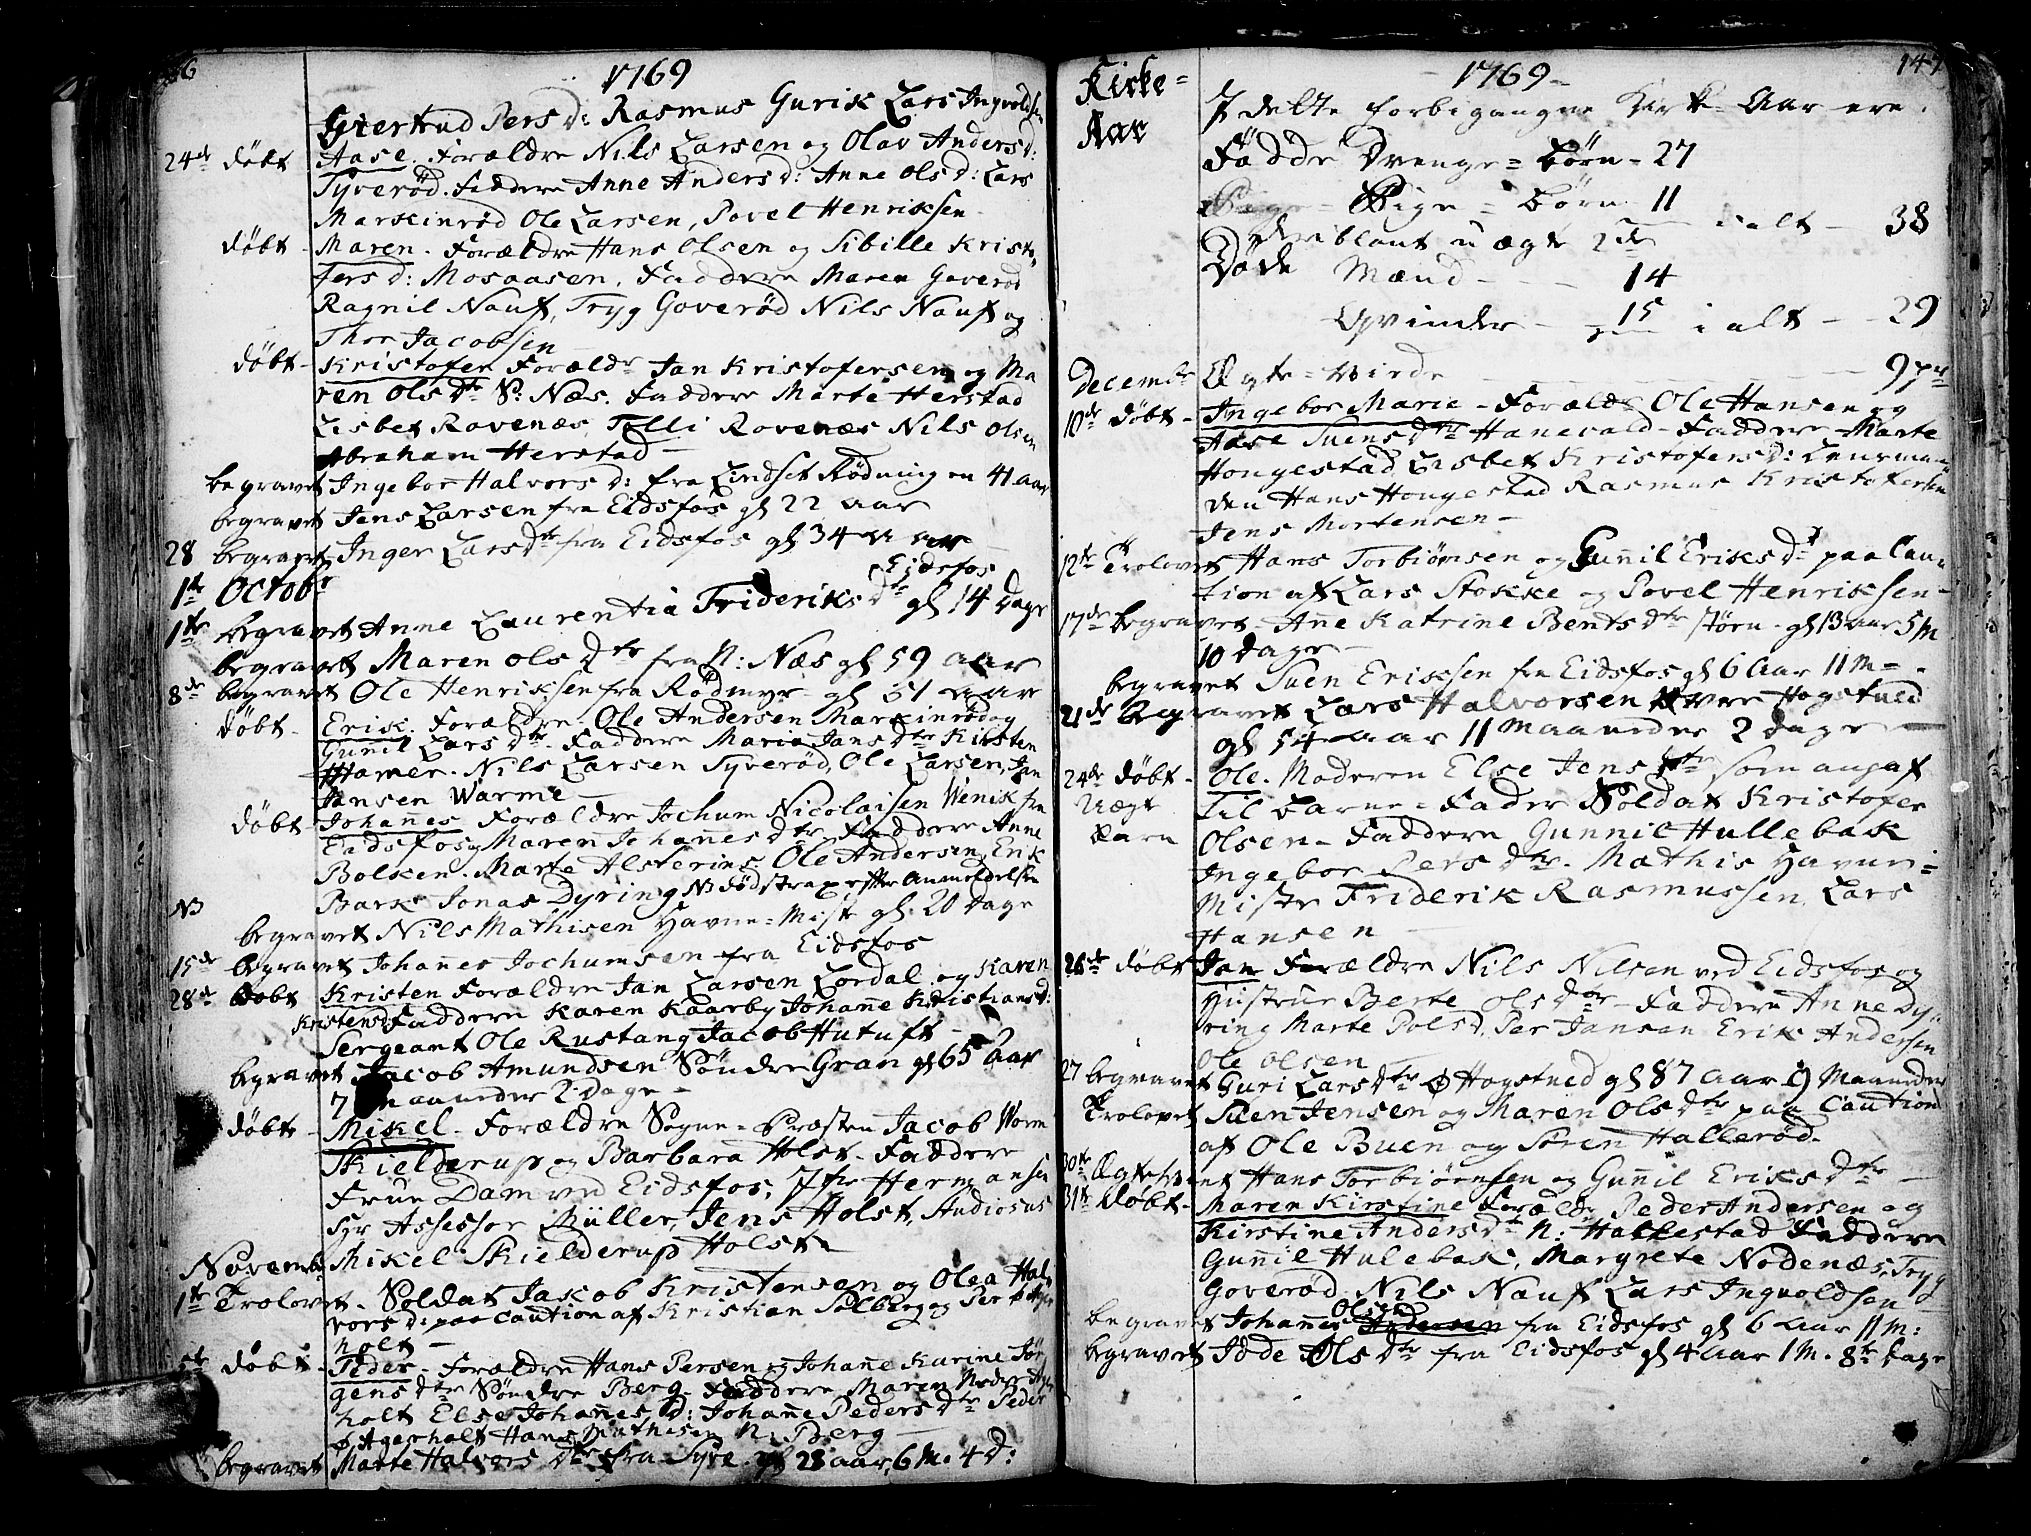 1769
Giertrud Persd: Rasmus Gurik Lars Ingvoldsen
24de døbt Aase. Forældre Nils Larsen og Olav Andersd:
Tyverød. Faddere Anne Andersd: Anne Olsd: Lars
Markinrød Ole Larsen, Povel Henriksen
døbt - Maren. Forældre Hans Olsen og Sibille Kristo,
fersd: Mosaasen, Faddere Maren Goverød
Ragnil Nauf, Tryg Goverød Nils Nauf og
Thor Jacobsen
døbt - Kristofer Foræld Jan Kristofersen og Ma
ren Olsdtr S: Næs. Faddere Marte Herstad
Lisbet Ravenæs, Tolli Rovenæs Nils Olsen
Abraham Herstad -
begravet Ingebor Halvorsd: fra Lindset Rødning en 41 aar
begravet Jens Larsen fra Eidsfos gl 22 aar
28 begravet Inger Larsdtr fra Eidsfos gl 34 aar
1te Octobr Eidsfos
1te begravet Anne Laurentia Frideriksdtr gl 14 Dage
begravet Maren Olsdtr fra N: Næs gl 59 aar
8de begravet Ole Henriksen fra Rødmyr gl 51 aar
døbt - Erik. Forældre Ole Andersen Markinrød og
Gunil Larsdtr. Faddere Maria Jansdtr Kirsten
Hamer. Nils Larsen Tyverød, Ole Larsen, Jan
Jansen Warme
døbt - Johañes Forældre Jochum Nicolaisen Wenik fra
Eidsfos og Maren Johañesdtr Faddere Anne
Bolken. Marte Alsterins Ole Andersen, Erik
Bark Jonas Dyring NB fødstrap efter Anmeldelsen
NB
begravet Nils Mathisen Havne-Mist gl. 20 Dage
15de begravet Johañes Jochumsen fra Eidsfos
28de døbt Kristen Forældre Jan Larsen Lordal og Karen
Kristensd Faddere Karen Kaarby Johañe Kristiansd:
Sergeant Ole Rustang Jacob Hutuft -
begravet Jacob Amundsen Søndre Gran gl 65 Aar
7 Maaneder 2 Dage -
døbt - Mikel - Forældre Sogne-Præsten Jacob Worm
Skielderup og Barbara Holst - Faddere
Frue Dam ved Eidsfos, Jfr Hermansen
Hr Assessor Büller, Jens Holst, Studiosus
Mikel Skielderup Holst
Novemb:
1te Trolovet - Soldat Jacob Kristensen og Olea Hal,
vorsd: paa Caution af Kristian Solberg og Per
holt -
døbt - Peder - Forældre Hans Persen og Johañe Karine Jør
gensdtr Søndre Berg. Faddere Maren Nedre
holt Else Johañesd: Johañe Pedersdtr Peder
Agerholt Hans Mathisen N: Berg
begravet Marte Halvorsdtr fra Syre gl 28 aar, 6 M. 4 D:
Kirke=
Aar
1769 - 147
I dette forbigangne Kirke Aar ere
Fødde Drenge = Børn - 27
Pige = Børn 11
deriblant uægte 2de ialt - 38
Døde Mænd - - - 14
Qvinder - 15 ialt - - 29
Decembr Ægte-viede - 9 pr
10de døbt - Ingebor Marie - Forældr Ole Hansen og
Aase Suensdtr Hanevald - Faddere Marte
Hougestad Lisbet Kristofersd: Lensman-
den Hans Hougestad Rasmus Kristofersen
Jens Mortensen -
12te Trolovet Hans Torbiørnsen og Guñil Eriksdtr paa Cau,
tion af Lars Stokke og Povel Henriksen -
17de begravet - Añe Katrine Bentsdtr Støen - gl 13 aar 5 M
10 Dage -
begravet Suen Eriksen fra Eidsfos gl 6 Aar 11 M
21de Begravet Lars Halvorsen Øvre Hogstued
gl 54 aar 11 Maaneder 2 Dage -
24de døbt - Ole. Moderen Else Jensdtr som angaf
Uægt til Barne-Fader Soldat Kristofer
Barn Olsen - Faddere Gunnil Hullebak
Ingebor Persdtr. Mathis Havne-
Mister Friderik Rasmussen, Lars
Hansen
26de døbt Jan Forældre Nils Nilsen ved Eidsfos og
Hustrue Berte Olsdtr - Faddere Anne Dy,
ring Marte Polsd. Per Jansen Erik Andersen
Ole Olsen
27 begravet Guri Larsdtr Ø Hogstued gl 87 Aar 9 Maaneder
Trolovet Suen Jensen og Maren Olsdtr paa Caution
af Ole Buen og Søren Hallerød.
30te Ægteviet Hans Torbiørnsen og Guñil Eriksdtr
31te Døbt - Maren Kirstine Foræld Peder Andersen og
Kirstine Andersdtr N: Hallestad Faddere
Guñil Hulebak, Margrete Nodenæs, Tryg
Goverød Nils Nauf Lars Ingvoldsen
Olsen
begravet Johañes Andersen fra Eidsfos gl 6 Aar 11 M:
begravet Jøde Olsdtr fra Eidsfos gl 4 Aar 1 M. 8te Dage